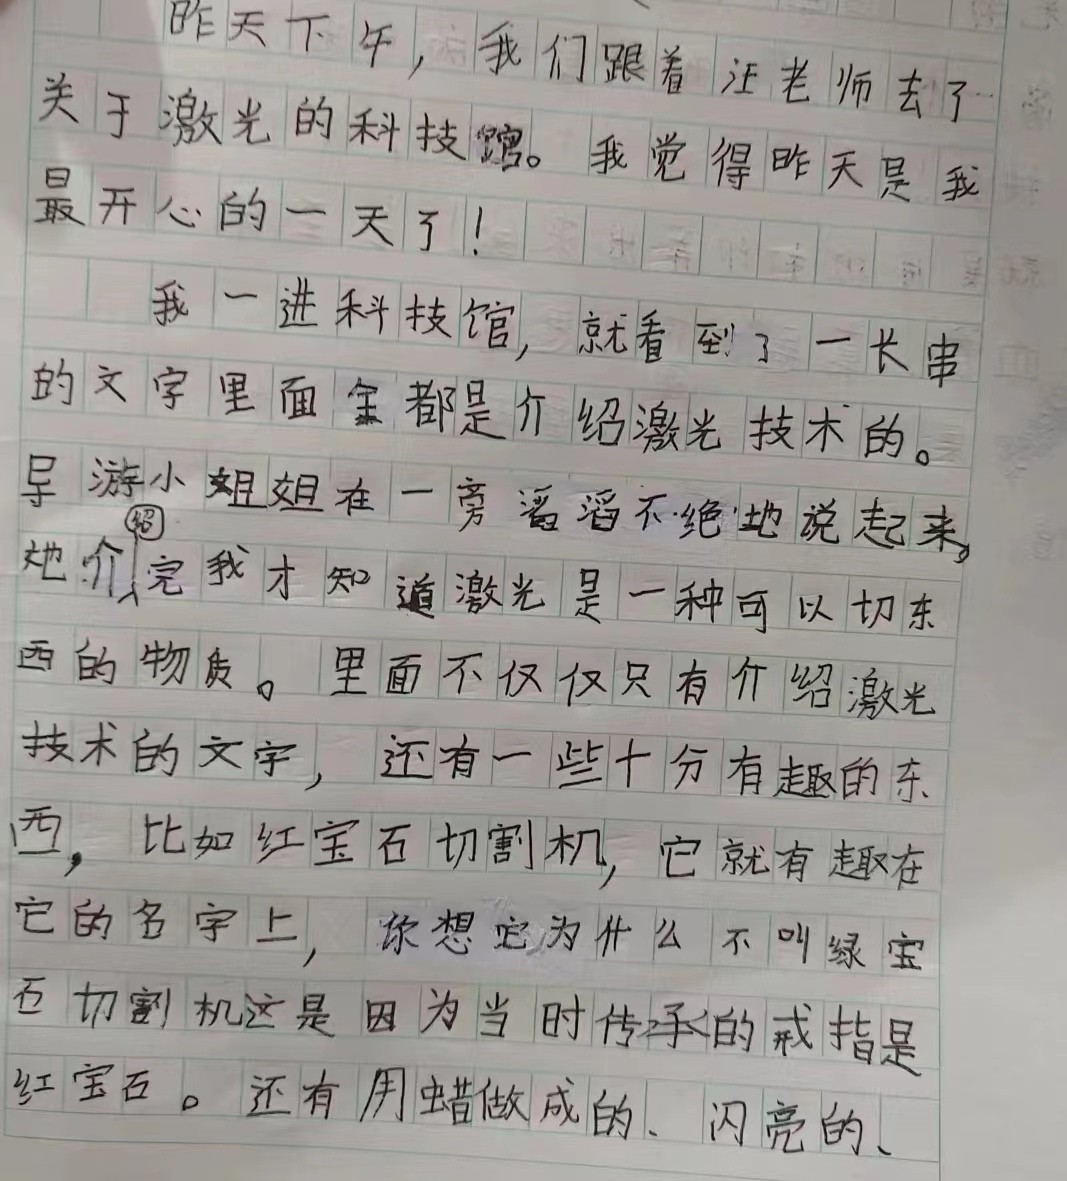 昨天下午，我们跟着汪老师去了
关于激光的科技馆。我觉得昨天是我
最开心的一天了！
我一进科技馆，就看到了一长串
的文字里面全都是介绍激光技术的。
导游小姐姐在一旁滔滔不绝地说起来，
她介绍完我才知道激光是一种可以切东
西的物质。里面不仅仅只有介绍激光
技术的文字，还有一些十分有趣的东
西，比如红宝石切割机，它就有趣在
它的名字上，你想它为什么不叫绿宝
石切割机这是因为当时传承的戒指是
红宝石。还有用蜡做成的、闪亮的、